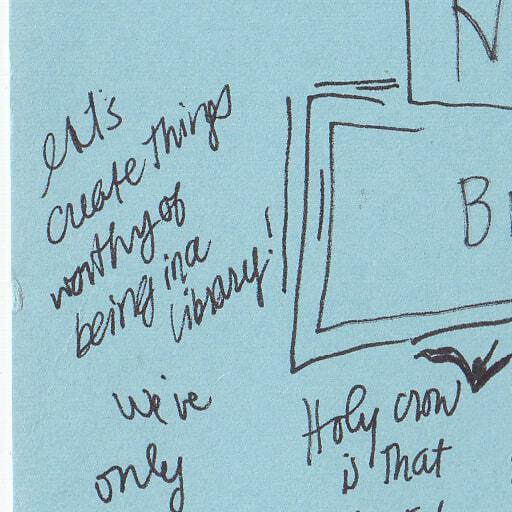 Let's
create things
worthy of
being in a
library!
We've
only
Holy crow
is that
N
B